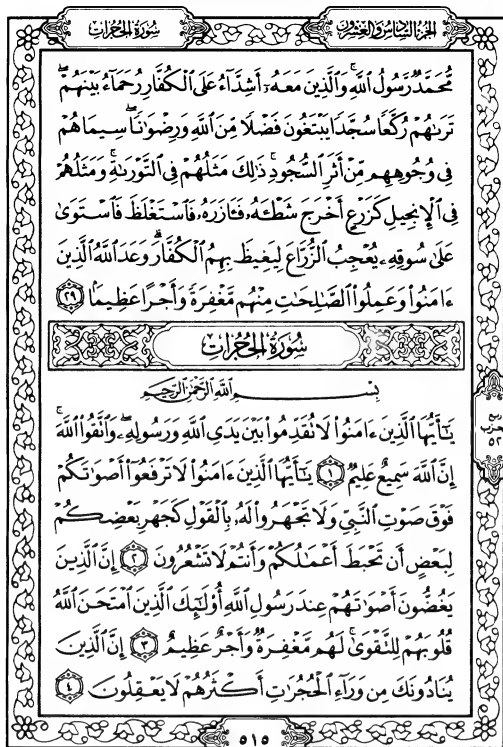 سُورَةُ الحُجُرَاتِ
الجُزْءُ السَّادِسُ وَالعِشْرُونَ
مُّحَمَّدٌ رَّسُولُ ٱللَّهِ ۚ وَٱلَّذِينَ مَعَهُۥٓ أَشِدَّآءُ عَلَى ٱلْكُفَّارِ رُحَمَآءُ بَيْنَهُمْ ۖ
تَرَىٰهُمْ رُكَّعًا سُجَّدًا يَبْتَغُونَ فَضْلًا مِّنَ ٱللَّهِ وَرِضْوَٰنًا ۖ سِيمَاهُمْ
فِى وُجُوهِهِم مِّنْ أَثَرِ ٱلسُّجُودِ ۚ ذَٰلِكَ مَثَلُهُمْ فِى ٱلتَّوْرَىٰةِ ۚ وَمَثَلُهُمْ
فِى ٱلْإِنجِيلِ كَزَرْعٍ أَخْرَجَ شَطْـَٔهُۥ فَـَٔازَرَهُۥ فَٱسْتَغْلَظَ فَٱسْتَوَىٰ
عَلَىٰ سُوقِهِۦ يُعْجِبُ ٱلزُّرَّاعَ لِيَغِيظَ بِهِمُ ٱلْكُفَّارَ ۗ وَعَدَ ٱللَّهُ ٱلَّذِينَ
ءَامَنُوا۟ وَعَمِلُوا۟ ٱلصَّٰلِحَٰتِ مِنْهُم مَّغْفِرَةً وَأَجْرًا عَظِيمًۢا ٢٩
سُورَةُ الحُجُرَاتِ
بِسْمِ ٱللَّهِ ٱلرَّحْمَٰنِ ٱلرَّحِيمِ
يَـٰٓأَيُّهَا ٱلَّذِينَ ءَامَنُوا۟ لَا تُقَدِّمُوا۟ بَيْنَ يَدَىِ ٱللَّهِ وَرَسُولِهِۦ ۖ وَٱتَّقُوا۟ ٱللَّهَ ۚ
إِنَّ ٱللَّهَ سَمِيعٌ عَلِيمٌ ١ يَـٰٓأَيُّهَا ٱلَّذِينَ ءَامَنُوا۟ لَا تَرْفَعُوٓا۟ أَصْوَٰتَكُمْ
فَوْقَ صَوْتِ ٱلنَّبِىِّ وَلَا تَجْهَرُوا۟ لَهُۥ بِٱلْقَوْلِ كَجَهْرِ بَعْضِكُمْ
لِبَعْضٍ أَن تَحْبَطَ أَعْمَٰلُكُمْ وَأَنتُمْ لَا تَشْعُرُونَ ٢ إِنَّ ٱلَّذِينَ
يَغُضُّونَ أَصْوَٰتَهُمْ عِندَ رَسُولِ ٱللَّهِ أُو۟لَـٰٓئِكَ ٱلَّذِينَ ٱمْتَحَنَ ٱللَّهُ
قُلُوبَهُمْ لِلتَّقْوَىٰ ۚ لَهُم مَّغْفِرَةٌ وَأَجْرٌ عَظِيمٌ ٣ إِنَّ ٱلَّذِينَ
يُنَادُونَكَ مِن وَرَآءِ ٱلْحُجُرَٰتِ أَكْثَرُهُمْ لَا يَعْقِلُونَ ٤
٥١٥